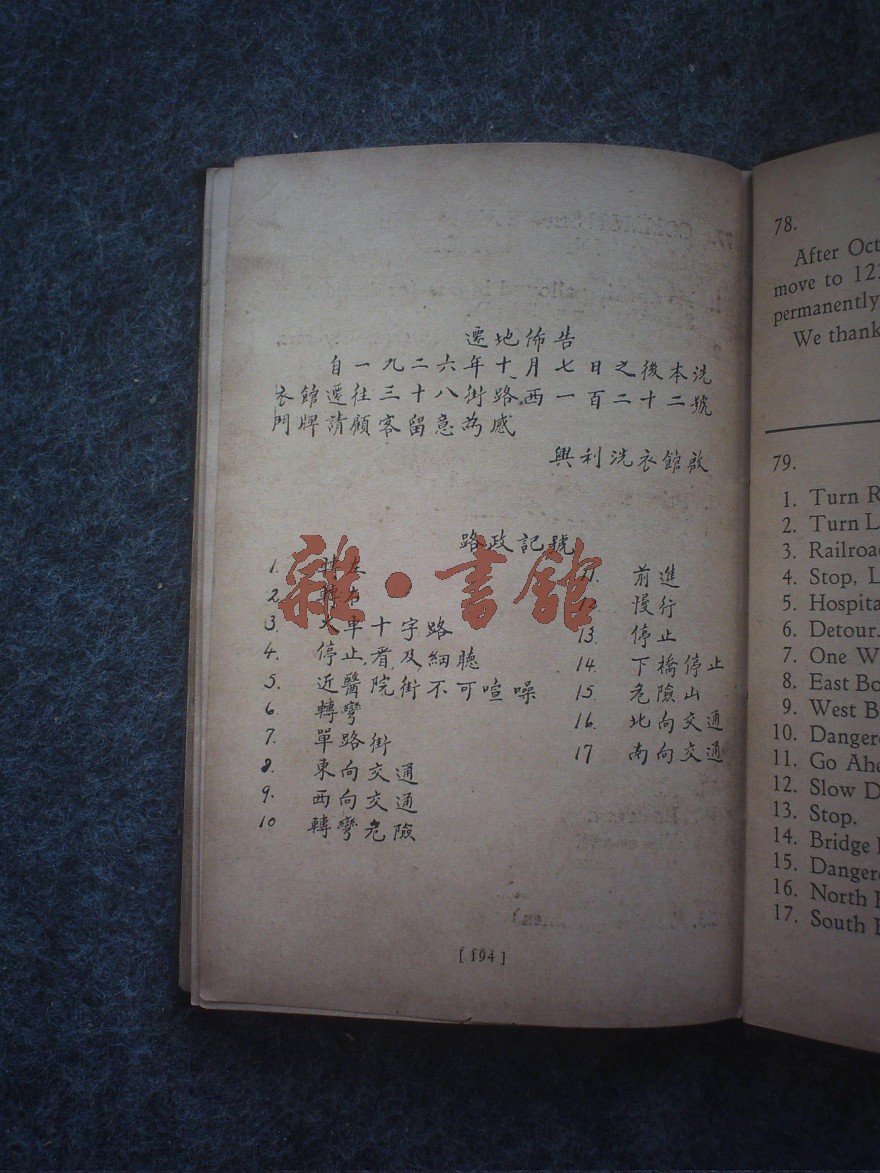 遷地佈告
自一九二六年十月七日之後本洗
衣館遷往三十八街路西一百二十二號
門牌請顧客留意為感
興利洗衣館啟
路政記號
1. 轉左
2. 轉右
3. 火車十字路
4. 停止看及細聽
5. 近醫院街不可喧噪
6. 轉彎
7. 單路街
8. 東向交通
9. 西向交通
10 轉彎危險
11. 前進
12. 慢行
13. 停止
14. 下橋停止
15. 危險山
16. 北向交通
17 南向交通
[194]
雜·書館
78.
After Oct
move to 12
permanently
We thank
79.
1. Turn R
2. Turn L
3. Railroa
4. Stop, L
5. Hospita
6. Detour.
7. One W
8. East Bo
9. West B
10. Danger
11. Go Ahe
12. Slow D
13. Stop.
14. Bridge
15. Danger
16. North
17. South